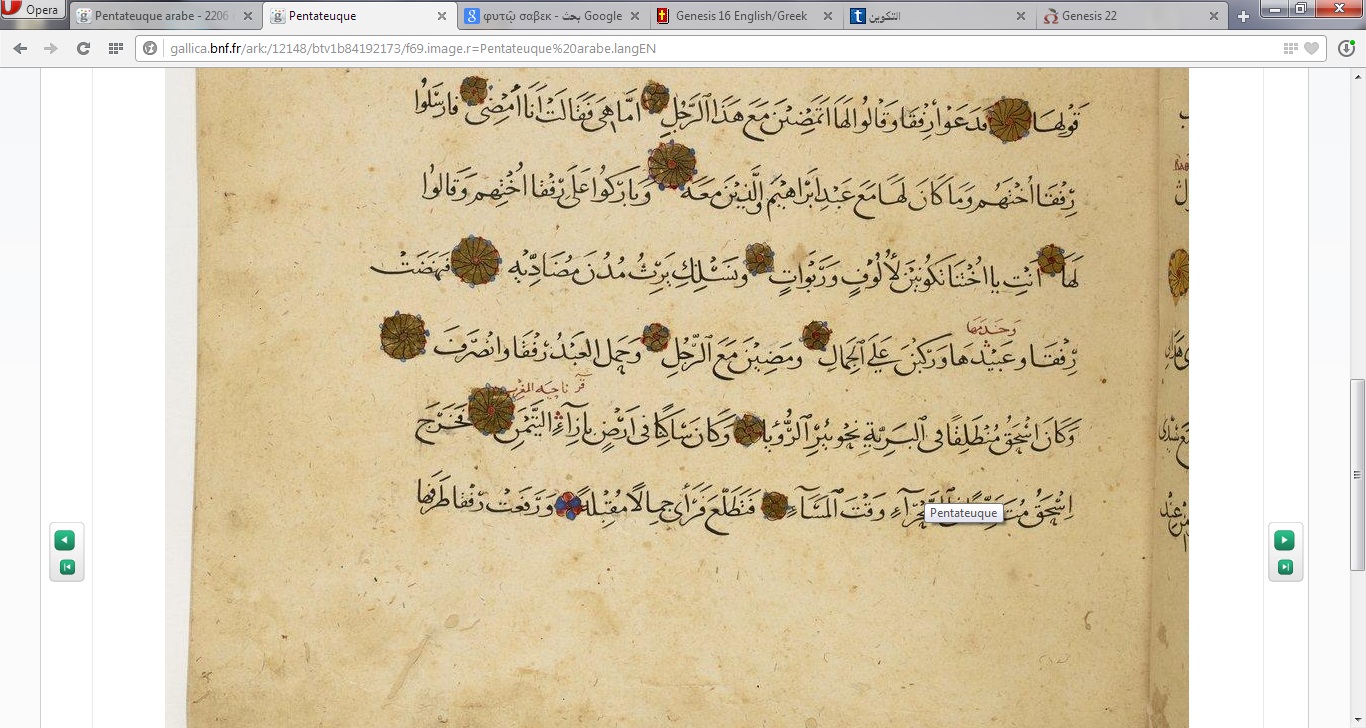 Opera
Pentateuque arabe - 2206
Pentateuque
φυτῷ σαβεκ - بحث Google
Genesis 16 English/Greek
التكوين
Genesis 22
gallica.bnf.fr/ark:/12148/btv1b84192173/f69.image.r=Pentateuque%20arabe.langEN
قَوْلها فدعوا رفقا وقالوا لها اتمضين مع هذا الرجل اما هى فقالت انا امضى فارسلوا
رفقا اختهم وما كان لها مع عبد ابراهيم والذين معه وباركوا على رفقا اختهم وقالوا
لها انتِ يا اختنا تكونين لألوفٍ وربواتٍ ونسلك يرث مدن مضاديه فنهضت
وخدمها
رفقا وعبيدها وركبن على الجمال ومضين مع الرجل وحمل العبد رفقا وانصرف
ناحيه
وكان اسحق منطلقًا فى البرية نحو بئر الرؤيا وكان ساكنًا فى ارض بازآء التيمن فخرج
اسحق وقت المسآء فتطلع فرأى جمالًا مقبلة ورفعت رفقا طرفها
Pentateuque